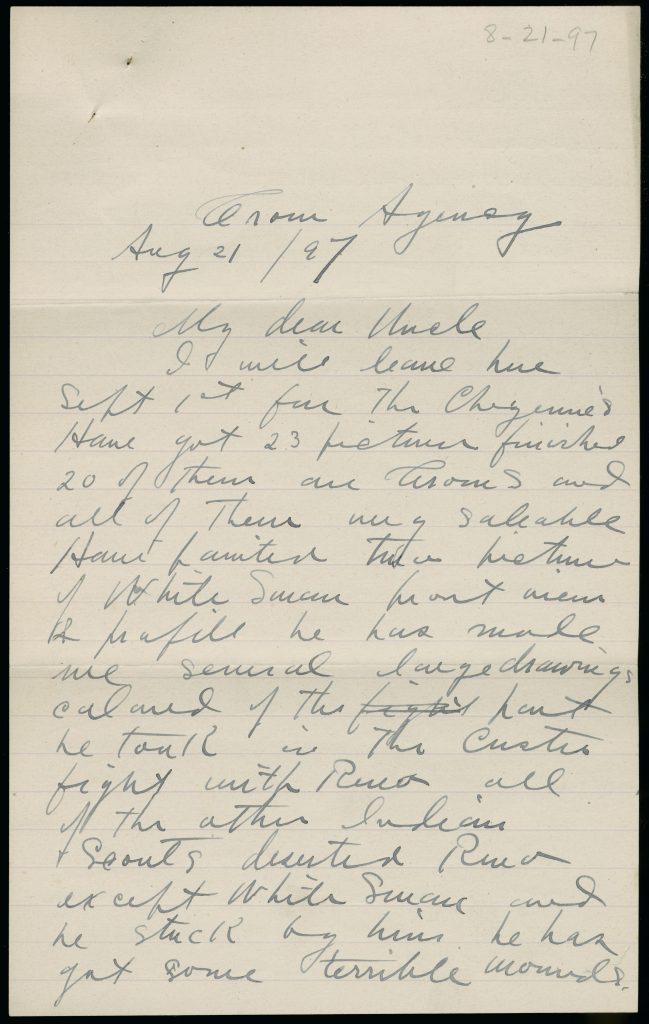 8-21-97
Crow Agency
Aug 21 /97
My dear Uncle
I will leave here
Sept 1st for The Cheyenne's
Have got 23 pictures finished
20 of them are Crows and
all of Them very saleable
Have painted two pictures
of White Swan front view
& profill he has made
me several large drawings
colored of the fight part
he took in The Custer
fight with Reno all
of the other Indian
Scouts deserted Reno
except White Swan and
he stuck by him he has
got some terrible wounds.